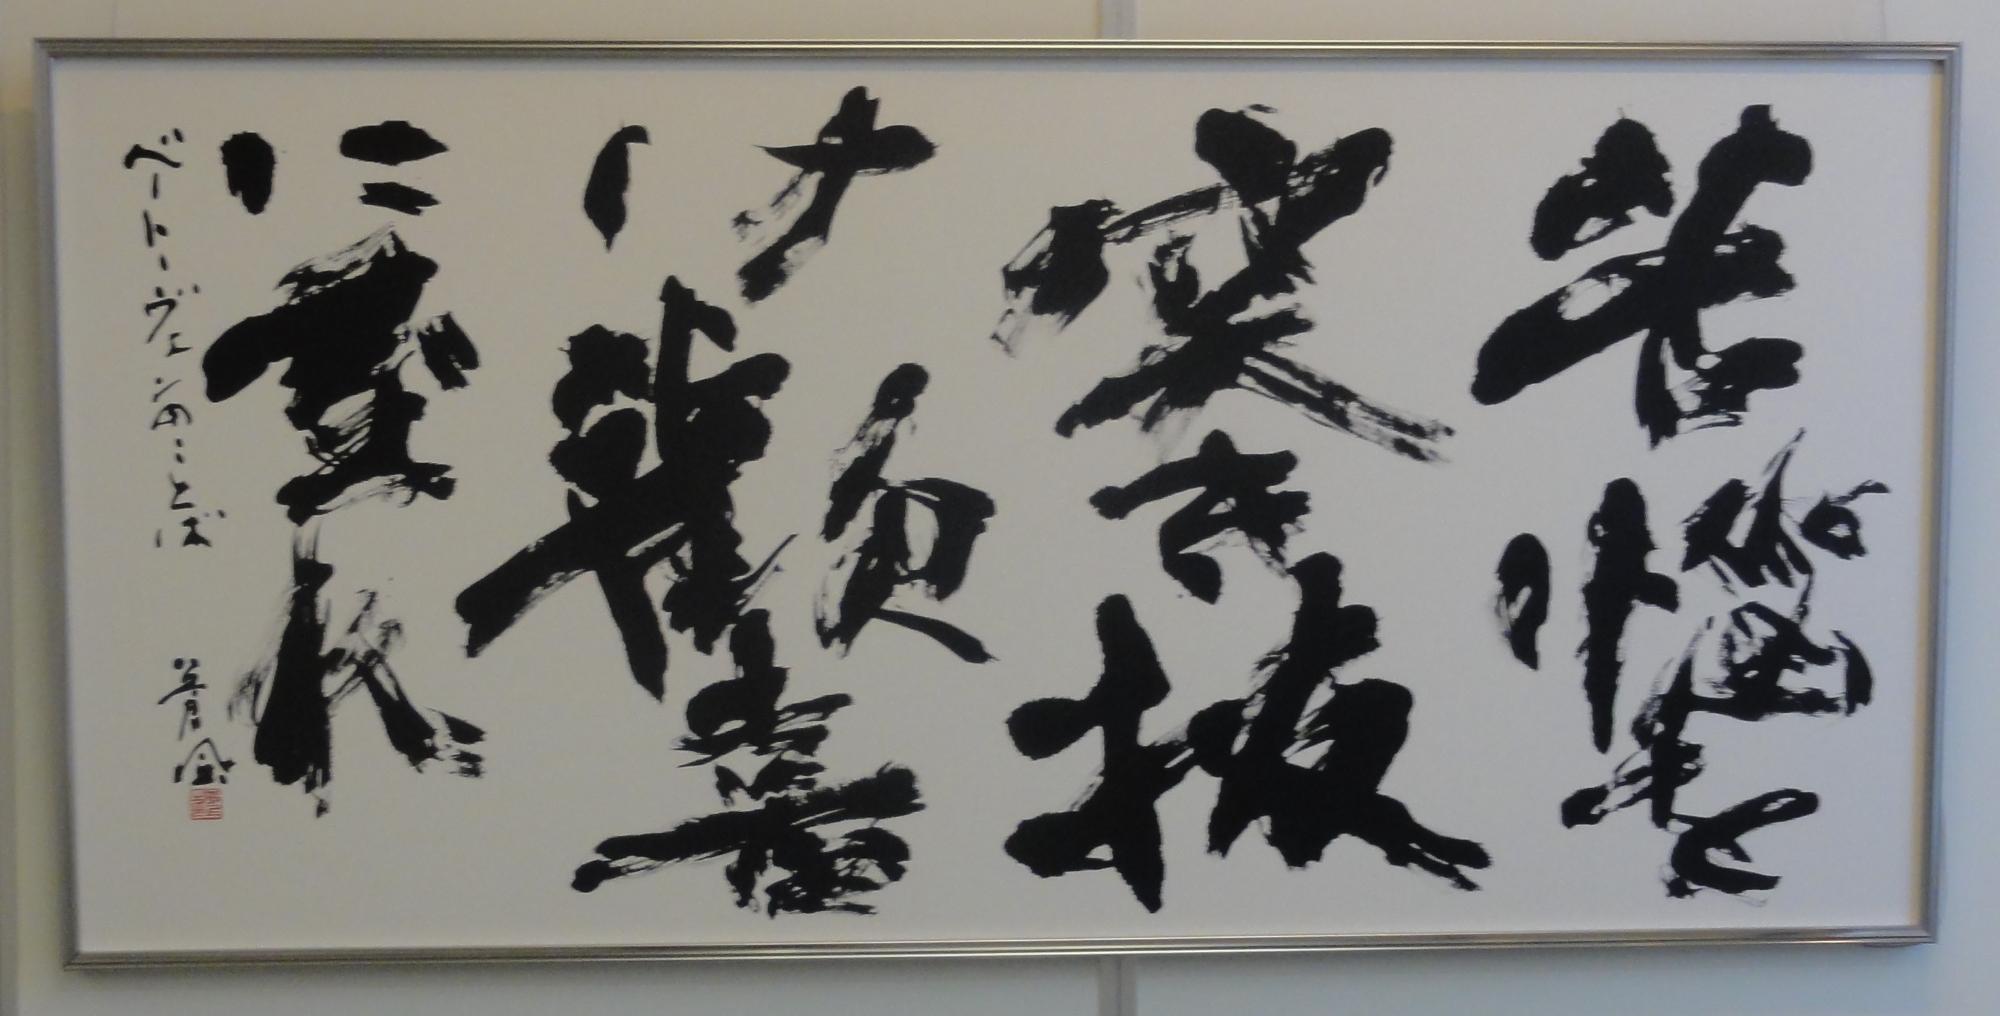 苦悩を
突き抜
け勿
歓喜
に至れ
ベートーヴェンのことば
蒼風